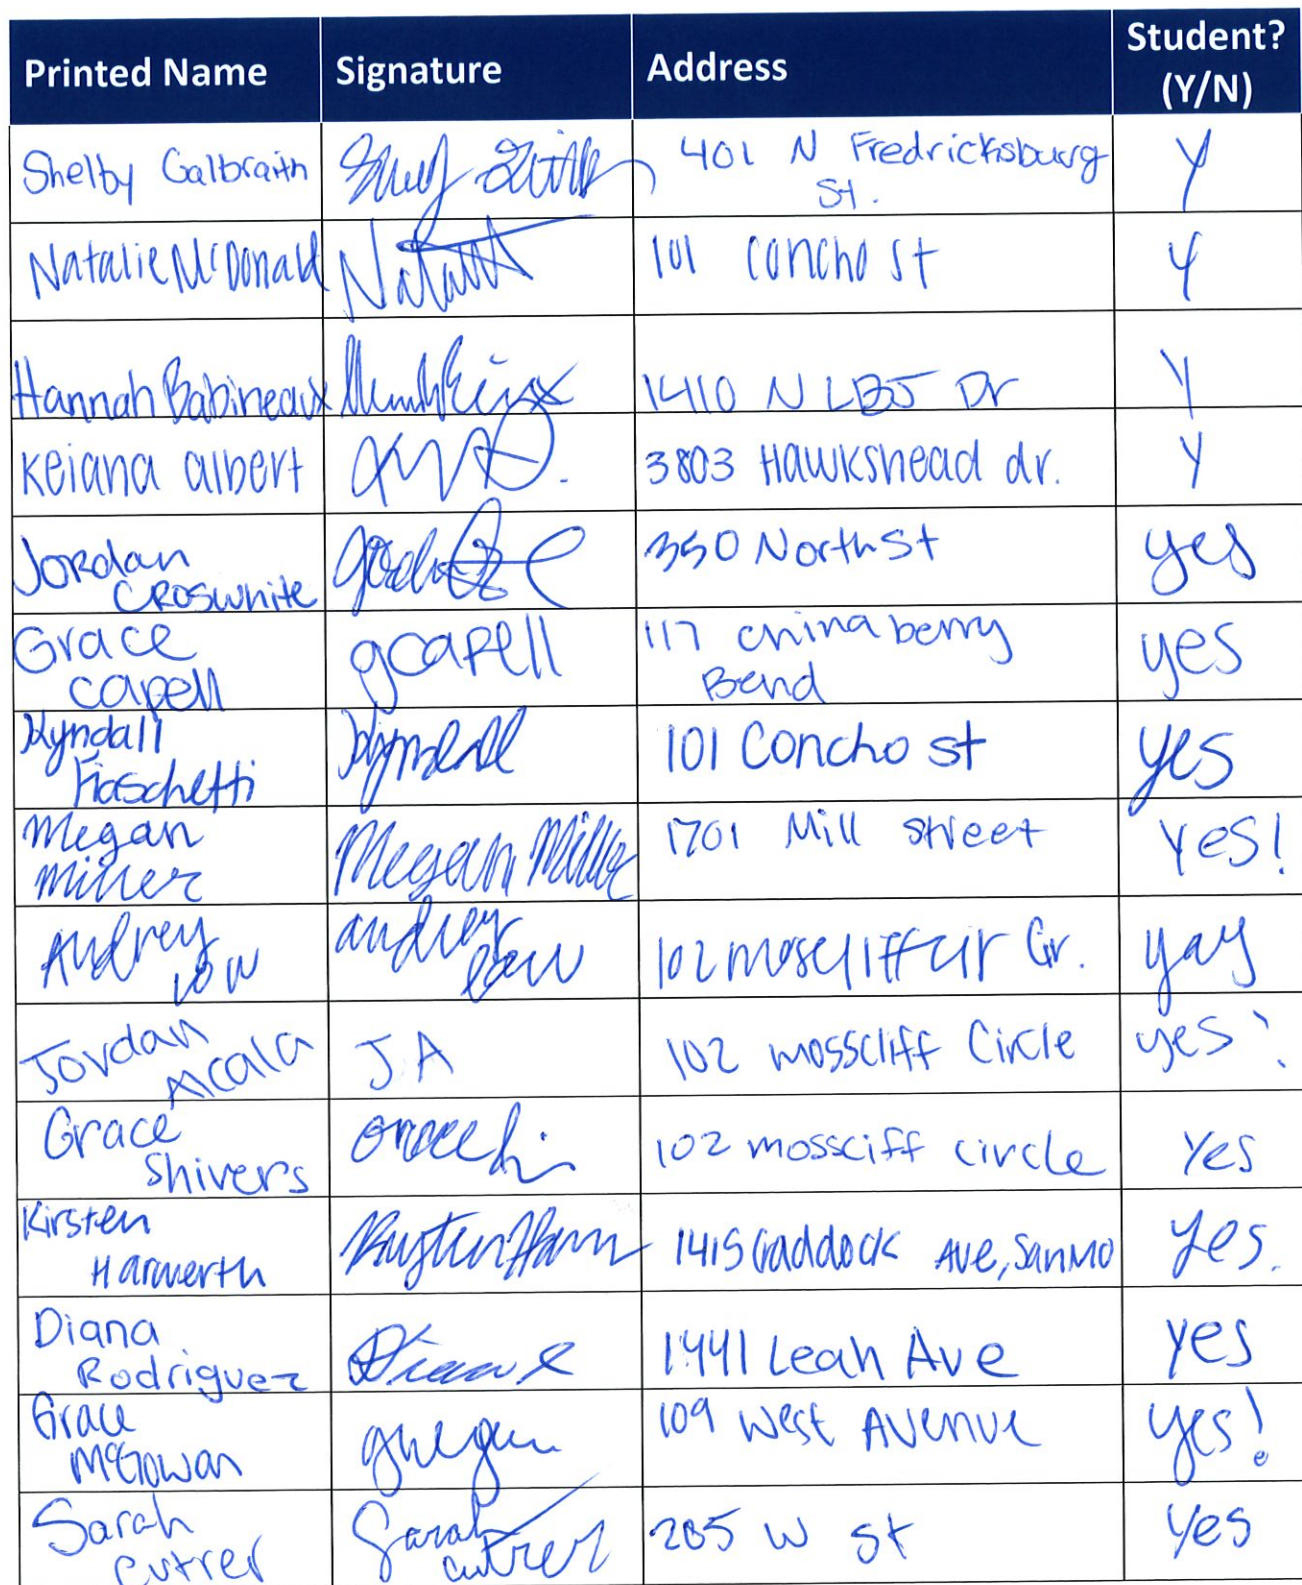 Printed Name Signature Address Student? (Y/N)
Shelby Galbraith 401 N Fredricksburg St. Y
Natalie McDonald 101 Concho St Y
Hannah Babineaux 1410 N LBJ Dr Y
Keiana albert 3803 Hawkshead dr. Y
Jordan Croswhite 350 North St yes
Grace Capell gcapell 117 chinaberry Bend yes
Kyndall Fiaschetti Kyndall 101 Concho st yes
Megan Miller Megan Miller 1701 Mill street Yes!
Audrey Low audrey Low 102 Cir. yay
Jordan Alcala J.A 102 mosscliff Circle yes!
Grace Shivers 102 mossciff circle Yes
Kirsten Harwerth 1415 Craddock Ave, San Mo yes.
Diana Rodriguez 1441 Leah Ave yes
Grace McGowan 109 West Avenue yes!
Sarah Cutrer Sarah Cutrer W St Yes